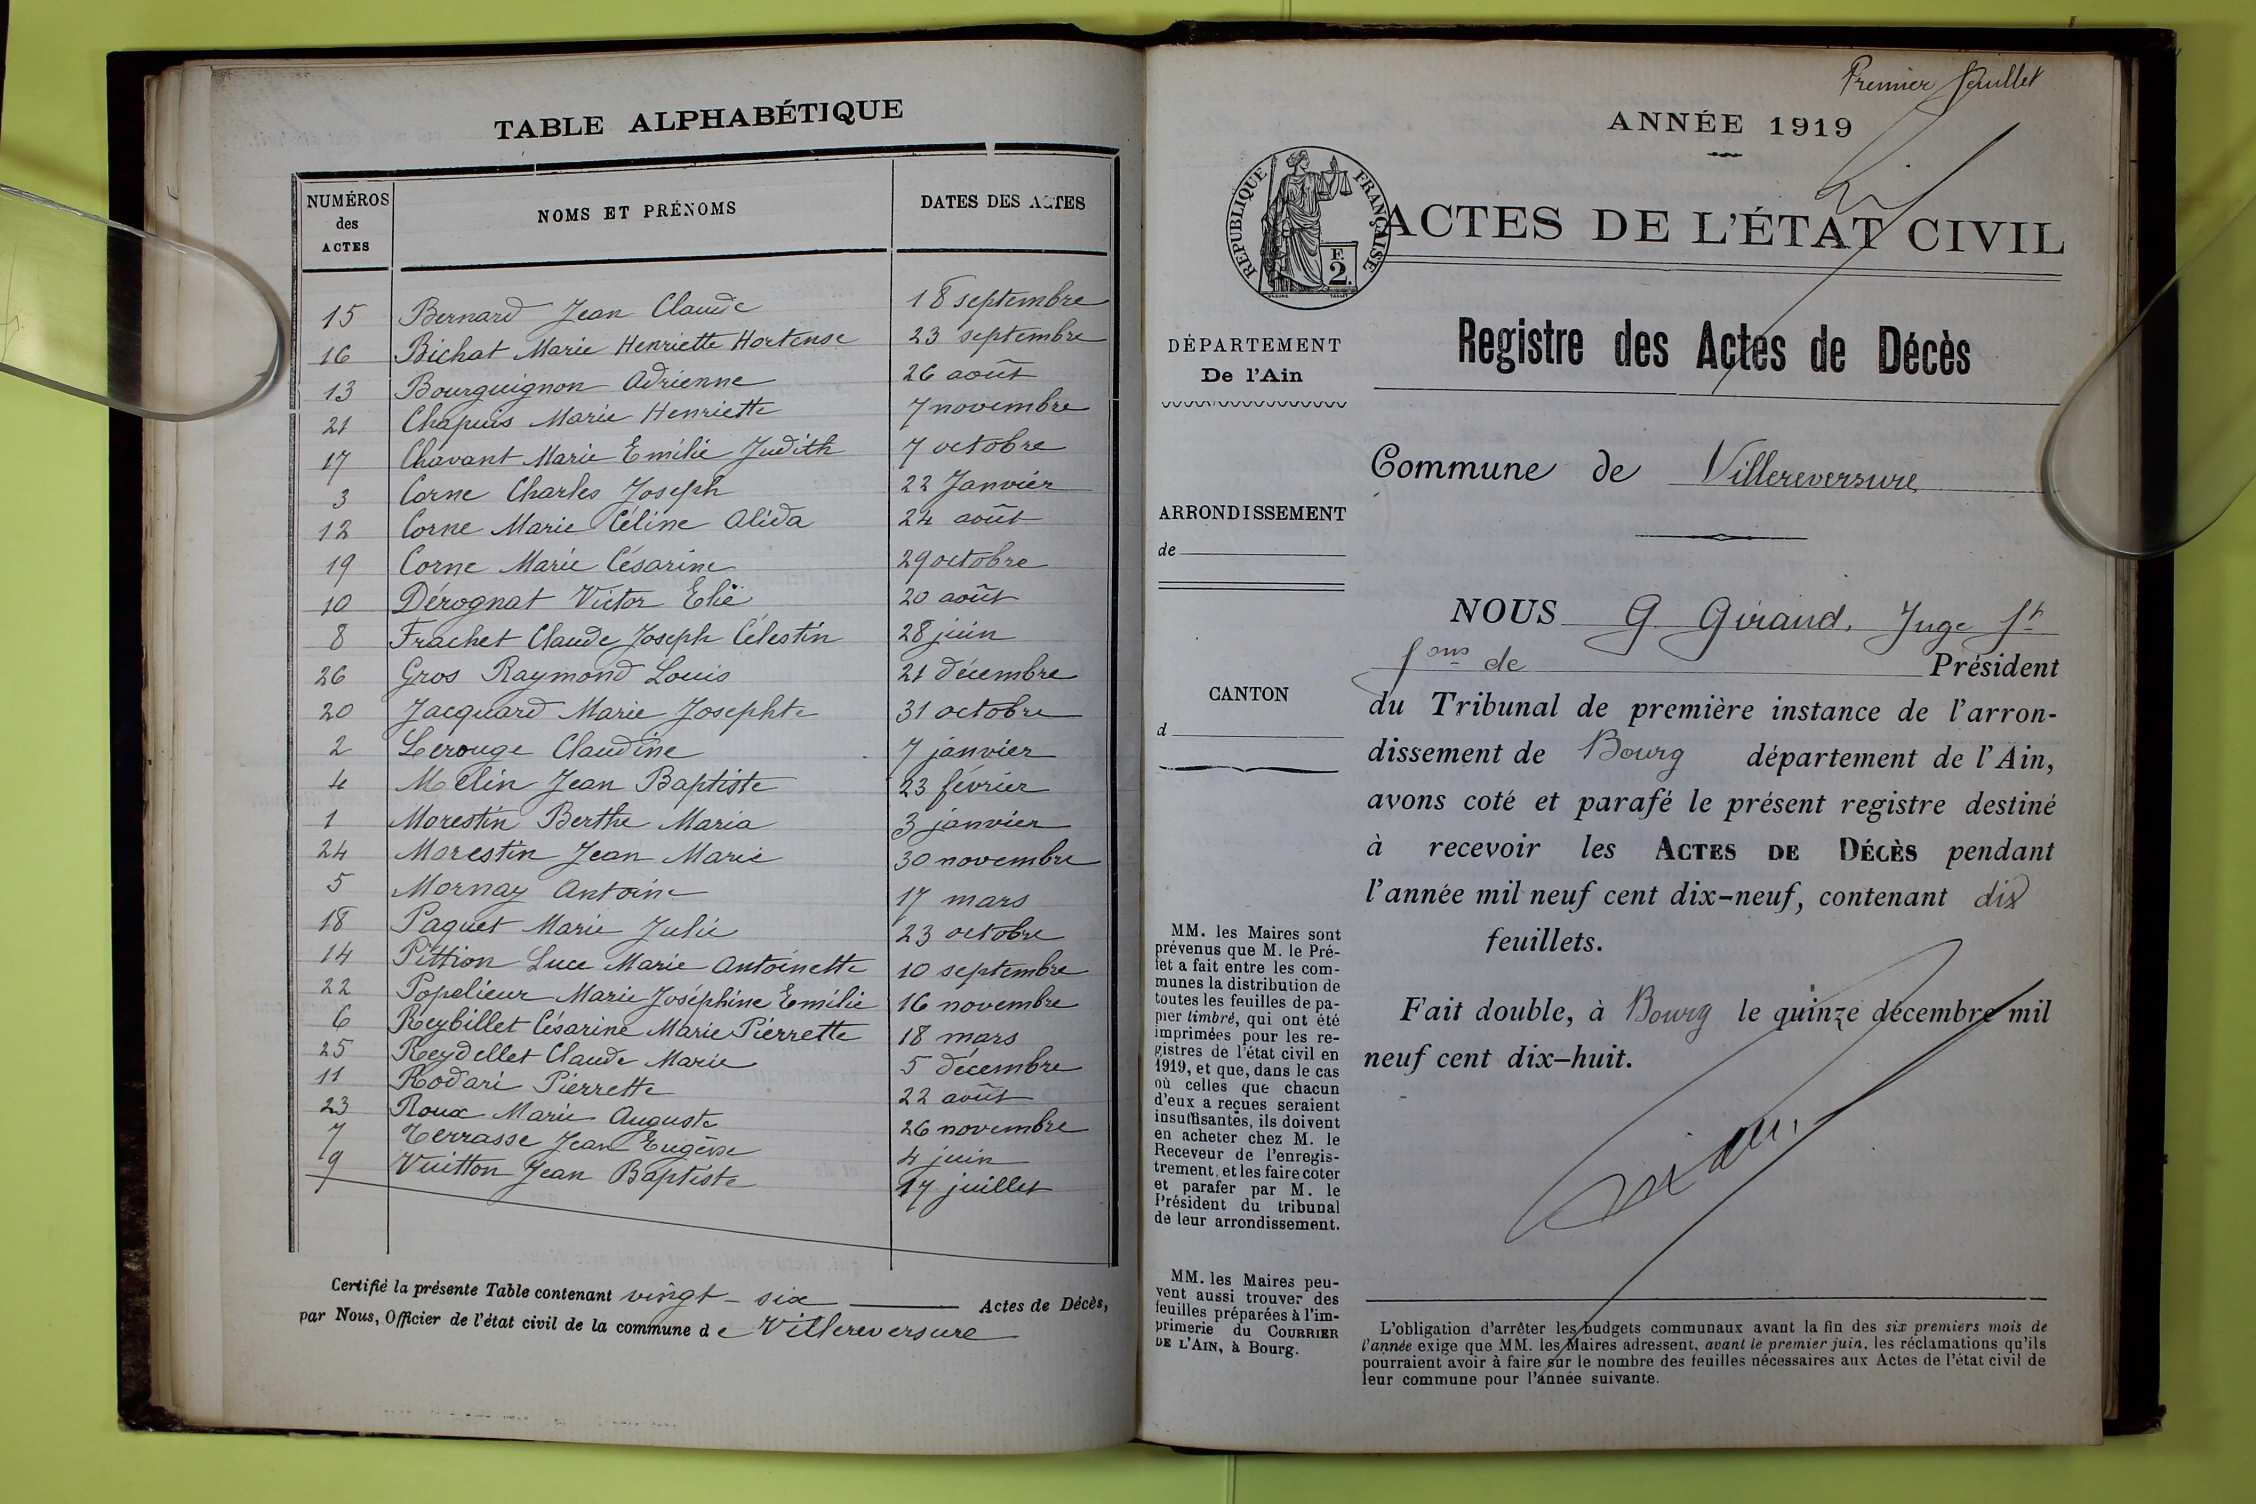 TABLE ALPHABÉTIQUE
NUMÉROS des ACTES
NOMS ET PRÉNOMS
DATES DES ACTES
15 Bernard Jean Claude 18 septembre
16 Bichat Marie Henriette Hortense 23 septembre
13 Bourguignon Adrienne 26 août
21 Chapuis Marie Henriette 7 novembre
17 Chavant Marie Emilie Judith 7 octobre
3 Corne Charles Joseph 22 Janvier
12 Corne Marie Céline Alida 24 août
19 Corne Marie Césarine 29 octobre
10 Dérognat Victor Elie 20 août
8 Frachet Claude Joseph Célestin 28 juin
26 Gros Raymond Louis 21 décembre
20 Jacquard Marie Josephte 31 octobre
2 Lerouge Claudine 7 janvier
4 Melin Jean Baptiste 23 février
1 Morestin Berthe Maria 3 janvier
24 Morestin Jean Marie 30 novembre
5 Mornay Antoine 17 mars
18 Paquet Marie Julie 23 octobre
14 Pittion Luce Marie Antoinette 10 septembre
22 Popelieur Marie Joséphine Emilie 16 novembre
6 Reybillet Césarine Marie Pierrette 18 mars
25 Reydellet Claude Marie 5 décembre
11 Rodari Pierrette 22 août
23 Roux Marie Auguste 26 novembre
7 Terrasse Jean Eugène 4 juin
9 Vuitton Jean Baptiste 17 juillet
Certifié la présente Table contenant vingt-six Actes de Décès,
par Nous, Officier de l'état civil de la commune de Villereversure
Premier feuillet
ANNÉE 1919
RÉPUBLIQUE FRANÇAISE
F.
2.
ACTES DE L'ÉTAT CIVIL
Registre des Actes de Décès
DÉPARTEMENT
De l'Ain
Commune de Villereversure
ARRONDISSEMENT
de
CANTON
d
NOUS G. Giraud, Juge
fons de Président
du Tribunal de première instance de l'arron-
dissement de Bourg département de l'Ain,
avons coté et parafé le présent registre destiné
à recevoir les ACTES DE DÉCÈS pendant
l'année mil neuf cent dix-neuf, contenant dix
feuillets.
Fait double, à Bourg le quinze décembre mil
neuf cent dix-huit.
MM. les Maires sont
prévenus que M. le Pré-
fet a fait entre les com-
munes la distribution de
toutes les feuilles de pa-
pier timbré, qui ont été
imprimées pour les re-
gistres de l'état civil en
1919, et que, dans le cas
où celles que chacun
d'eux a reçues seraient
insuffisantes, ils doivent
en acheter chez M. le
Receveur de l'enregis-
trement, et les faire coter
et parafer par M. le
Président du tribunal
de leur arrondissement.
MM. les Maires peu-
vent aussi trouver des
feuilles préparées à l'im-
primerie du COURRIER
DE L'AIN, à Bourg.
L'obligation d'arrêter les budgets communaux avant la fin des six premiers mois de
l'année exige que MM. les Maires adressent, avant le premier juin, les réclamations qu'ils
pourraient avoir à faire sur le nombre des feuilles nécessaires aux Actes de l'état civil de
leur commune pour l'année suivante.